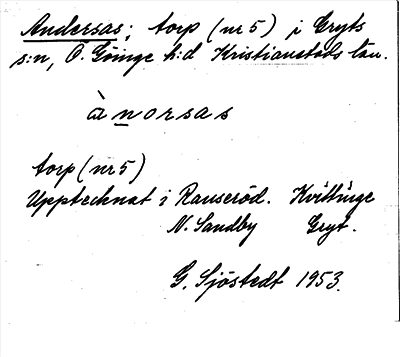 Andersas; torp (nr 5) i Gryts
s:n, Ö. Göinge h:d Kristianstads län.
ànorsas
torp (nr 5)
Upptecknat i Ranseröd. Kvittinge
N. Sandby Gryt.
G. Sjöstedt 1953.